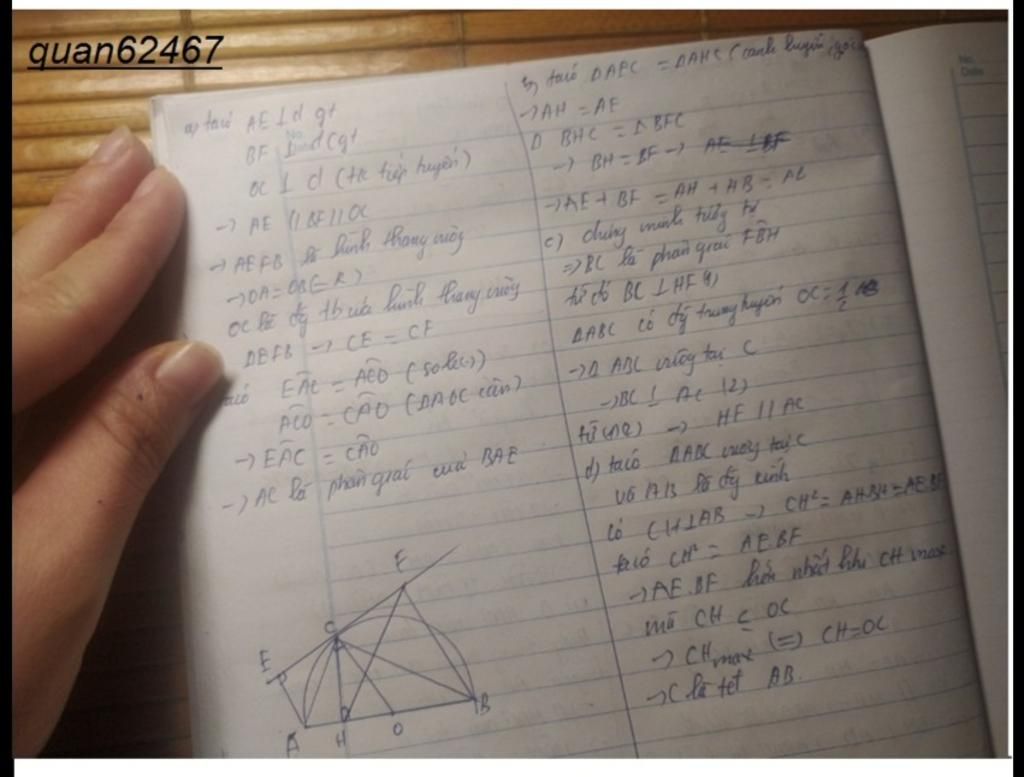 quan62467
a, ta có AE ⊥ d gt
BF ⊥ d gt
OC ⊥ d (t/c tiếp tuyến)
-> AE // BF // OC
-> AEFB là hình thang vuông
-> OA = OB (= R)
OC là đg tb của hình thang vuông
-> CE = CF
ta có EAC = ACO (sole)
ACO = CAO (ΔAOC cân)
-> EAC = CAO
-> AC là phân giác của BAE
E
F
C
A
H
O
B
b, ta có ΔAEC = ΔAHC (cạnh huyền, góc
-> AH = AE
Δ BHC = Δ BFC
-> BH = BF -> AE ⊥ BF
-> AE + BF = AH + HB = AB
c) chứng minh tương tự
=> BC là phân giác FBH
từ đó BC ⊥ HF (1)
ΔABC có đg trung tuyến OC = 1/2 AB
-> Δ ABC vuông tại C
-> BC ⊥ AC (2)
từ (1)(2) -> HF // AC
d) ta có ΔABC vuông tại C
AB là đg kính
có CH ⊥ AB -> CH² = AH.BH = AE.BF
ta có CH² = AE.BF
-> AE.BF lớn nhất khi CH max
mà CH ≤ OC
-> CH max (=) CH = OC
-> C là AB.
No.
Date